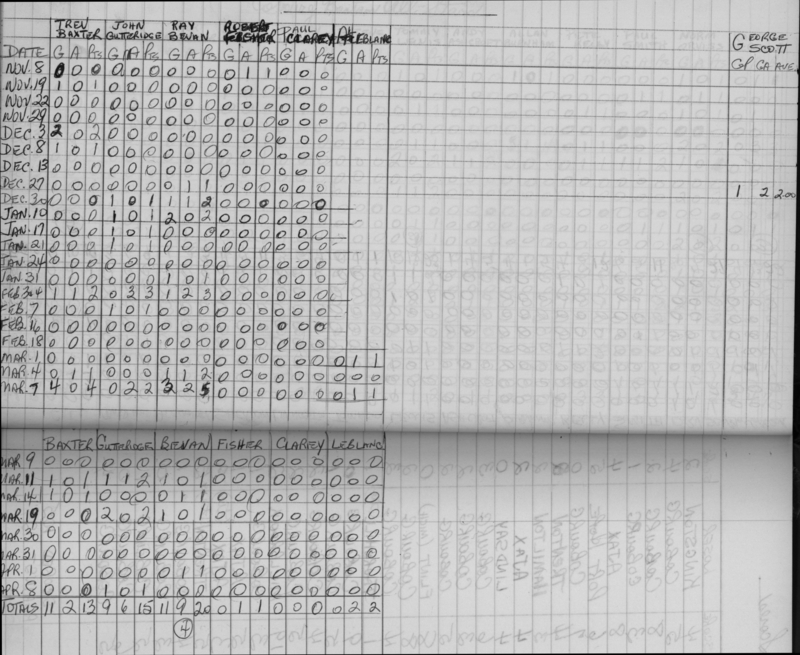 TREV JOHN RAY ROBERT PAUL GEORGE
BAXTER GUTTERIDGE BEVAN FISHER CLAREY LEBLANC SCOTT
DATE G A Pts G A Pts G A Pts G A Pts G A Pts G A Pts GP GA AVE
NOV. 8 0 0 0 0 0 0 0 0 0 0 1 1 0 0 0
NOV. 19 1 0 1 0 0 0 0 0 0 0 0 0 0 0 0
NOV 22 0 0 0 0 0 0 0 0 0 0 0 0 0 0 0
NOV. 29 0 0 0 0 0 0 0 0 0 0 0 0 0 0 0
DEC. 3 2 0 2 0 0 0 0 0 0 0 0 0 0 0 0
DEC. 8 1 0 1 0 0 0 0 0 0 0 0 0 0 0 0
DEC. 13 0 0 0 0 0 0 0 0 0 0 0 0 0 0 0
DEC. 27 0 0 0 0 0 0 0 1 1 0 0 0 0 0 0 1 2 2.00
DEC. 30 0 0 0 1 0 1 1 1 2 0 0 0 0 0 0
JAN. 10 0 0 0 1 0 1 2 0 2 0 0 0 0 0 0
JAN. 17 0 0 0 1 0 1 0 0 0 0 0 0 0 0 0
JAN. 21 0 0 0 1 0 1 0 0 0 0 0 0 0 0 0
JAN. 24 0 0 0 0 0 0 0 0 0 0 0 0 0 0 0
JAN 31 0 0 0 0 0 0 1 0 1 0 0 0 0 0 0
FEB 3+4 1 1 2 0 3 3 1 2 3 0 0 0 0 0 0
FEB. 7 0 0 0 1 0 1 0 0 0 0 0 0 0 0 0
FEB. 16 0 0 0 0 0 0 0 0 0 0 0 0 0 0 0
FEB. 18 0 0 0 0 0 0 0 0 0 0 0 0 0 0 0
MAR. 1 0 0 0 0 0 0 0 0 0 0 0 0 0 0 0 0 1 1
MAR. 4 0 1 1 0 0 0 1 1 2 0 0 0 0 0 0 0 0 0
MAR. 7 4 0 4 0 2 2 3 2 5 0 0 0 0 0 0 0 1 1
BAXTER GUTTERIDGE BEVAN FISHER CLAREY LEBLANC
MAR 9 0 0 0 0 0 0 0 0 0 0 0 0 0 0 0 0 0 0
MAR. 11 1 0 1 1 1 2 1 0 1 0 0 0 0 0 0 0 0 0
MAR. 14 1 0 1 0 0 0 0 1 1 0 0 0 0 0 0 0 0 0
MAR 19 0 0 0 2 0 2 1 0 1 0 0 0 0 0 0 0 0 0
MAR. 30 0 0 0 0 0 0 0 0 0 0 0 0 0 0 0 0 0 0
MAR. 31 0 0 0 0 0 0 0 0 0 0 0 0 0 0 0 0 0 0
APR. 1 0 0 0 0 0 0 0 1 1 0 0 0 0 0 0 0 0 0
APR. 8 0 0 0 1 0 1 0 0 0 0 0 0 0 0 0 0 0 0
TOTALS 11 2 13 9 6 15 11 9 20 0 1 1 0 0 0 0 2 2
4